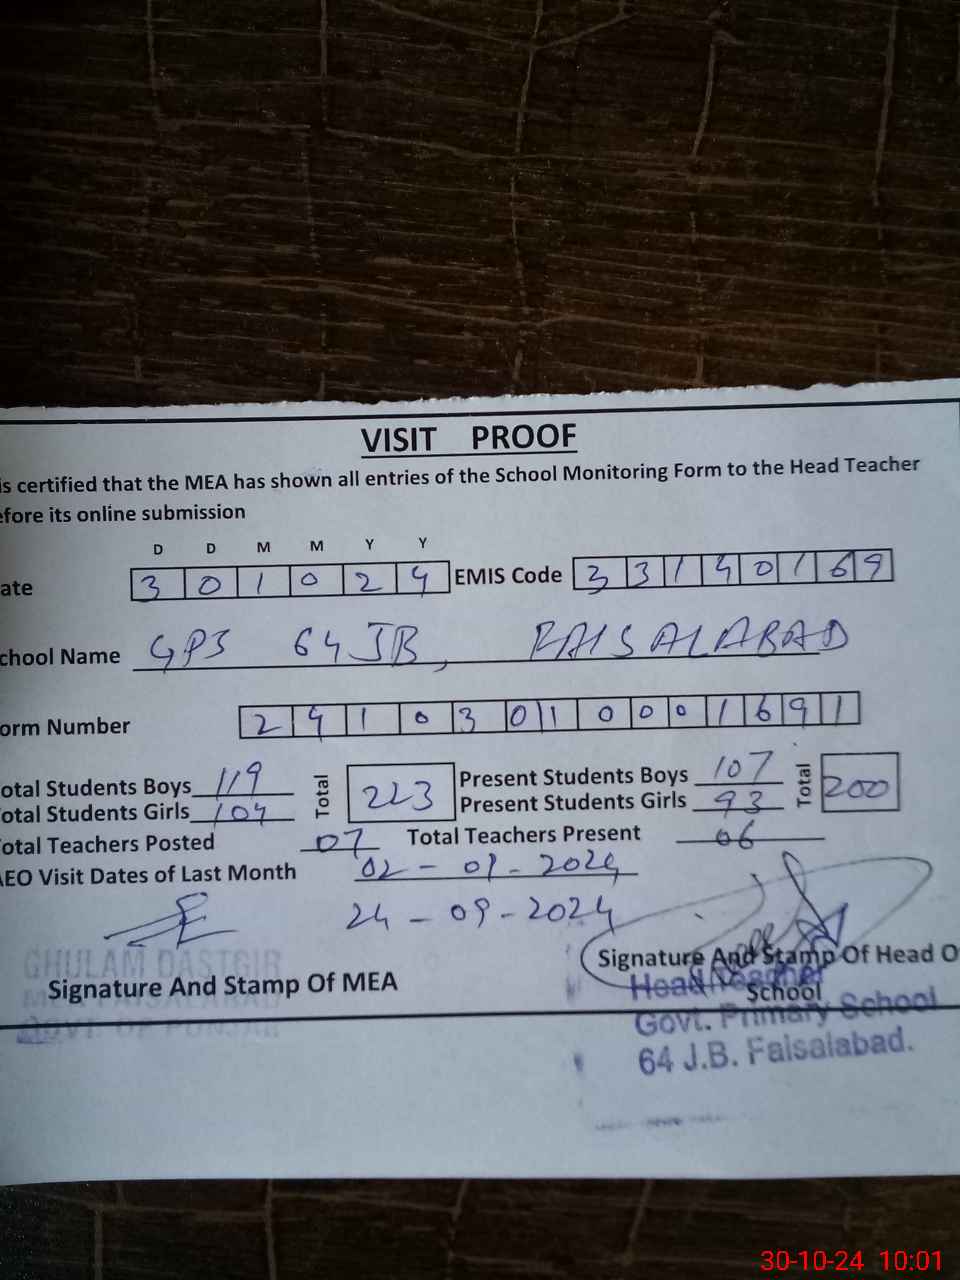 VISIT PROOF
is certified that the MEA has shown all entries of the School Monitoring Form to the Head Teacher
efore its online submission
D D M M Y Y
ate 3 0 1 0 2 4 EMIS Code 3 3 1 4 0 1 6 9
chool Name GPS 64 JB, FAISALABAD
orm Number 2 4 1 0 3 0 1 0 0 0 1 6 9 1
otal Students Boys 119 Total 223 Present Students Boys 107 Total 200
otal Students Girls 104 Present Students Girls 93
otal Teachers Posted 07 Total Teachers Present 06
AEO Visit Dates of Last Month 02 - 09 - 2024
24 - 09 - 2024
GHULAM DASTGIR
Signature And Stamp Of MEA
FAISALABAD
GOVT. OF PUNJAB
Signature And Stamp Of Head O
School
Head Teacher
Govt. Primary School
64 J.B. Faisalabad.
30-10-24 10:01